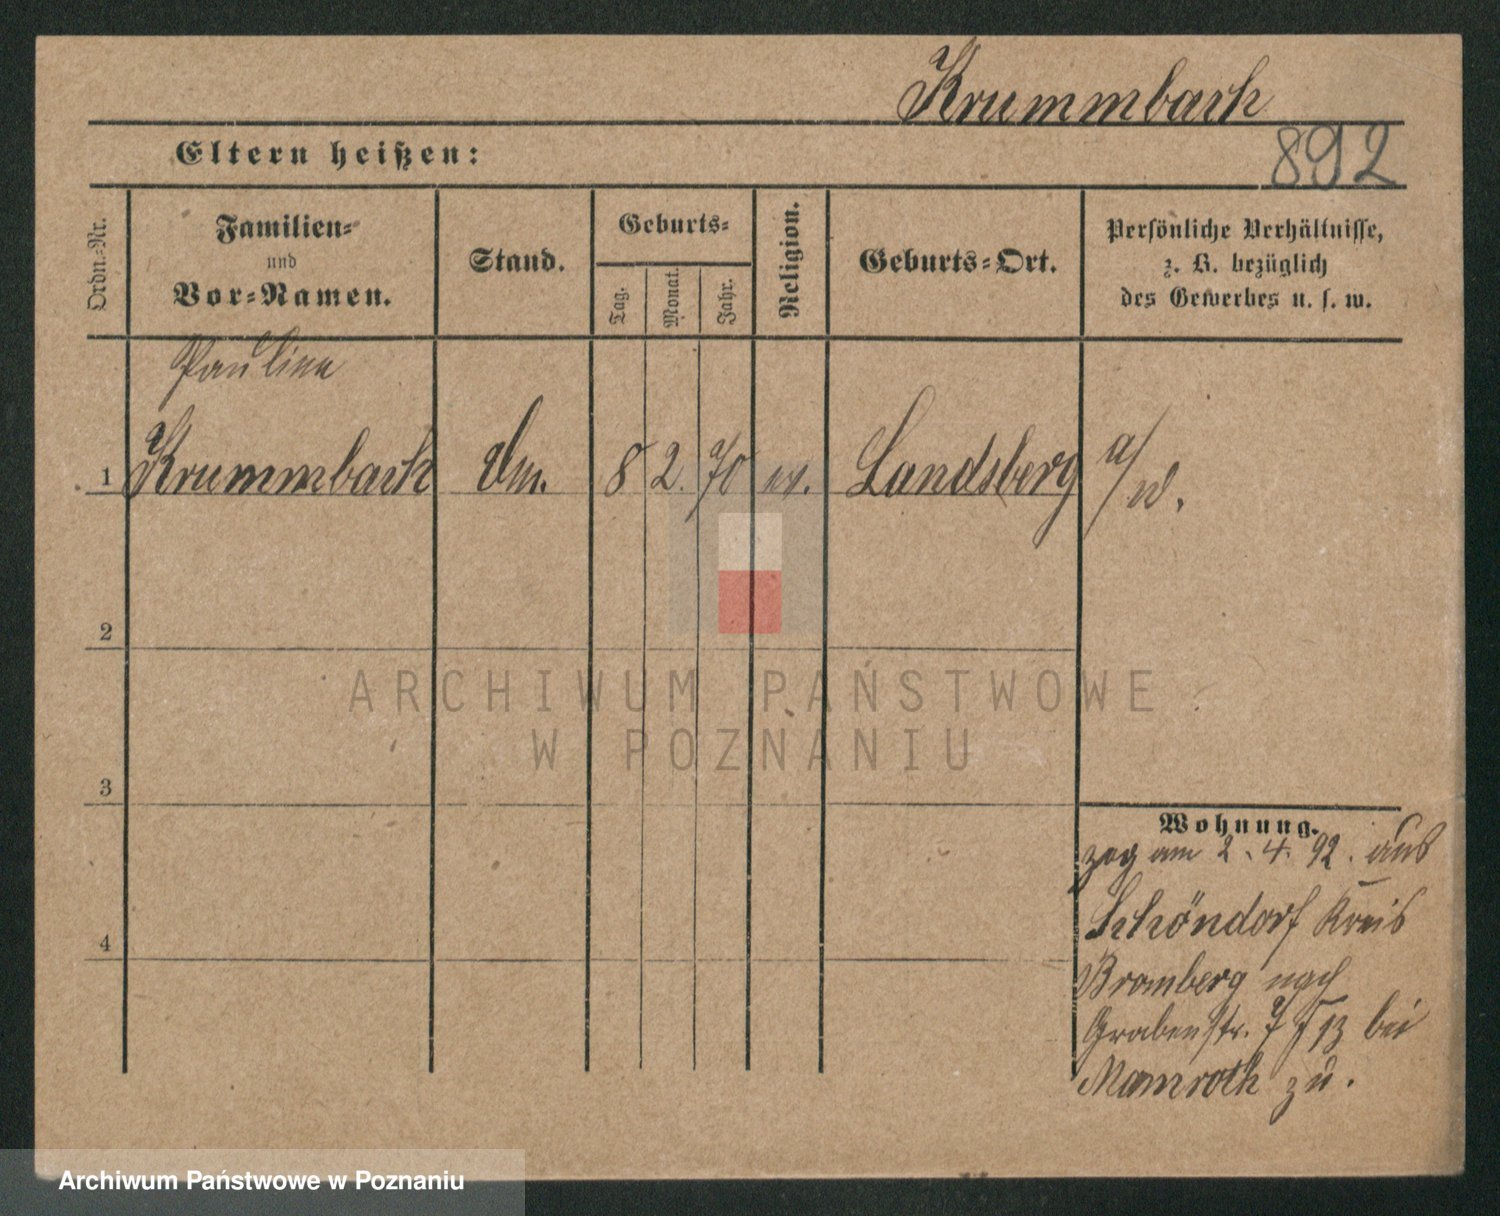 Krummbach
892
Eltern heißen:
Ordn.-Nr.
Familien-
und
Vor-Namen.
Stand.
Geburts-
Tag.
Monat.
Jahr.
Religion.
Geburts-Ort.
Persönliche Verhältnisse,
z. B. bezüglich
des Gewerbes u. s. w.
Pauline
1 Krummbach 8 2. 70 ev. Landsberg a/W.
2
3
4
Wohnung.
zog am 2. 4. 92. aus
Schöndorf Kreis
Bromberg nach
Grabenstr. 7 13 bei
Mamroth zu.
ARCHIWUM PAŃSTWOWE
W POZNANIU
Archiwum Państwowe w Poznaniu